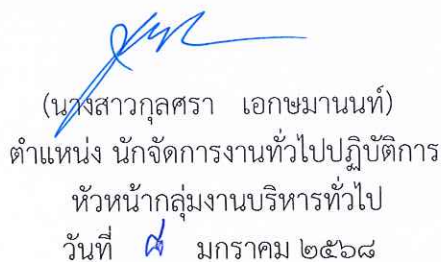 (นางสาวกุลศรา เอกษมานนท์)
ตำแหน่ง นักจัดการงานทั่วไปปฏิบัติการ
หัวหน้ากลุ่มงานบริหารทั่วไป
วันที่ มกราคม ๒๕๖๘